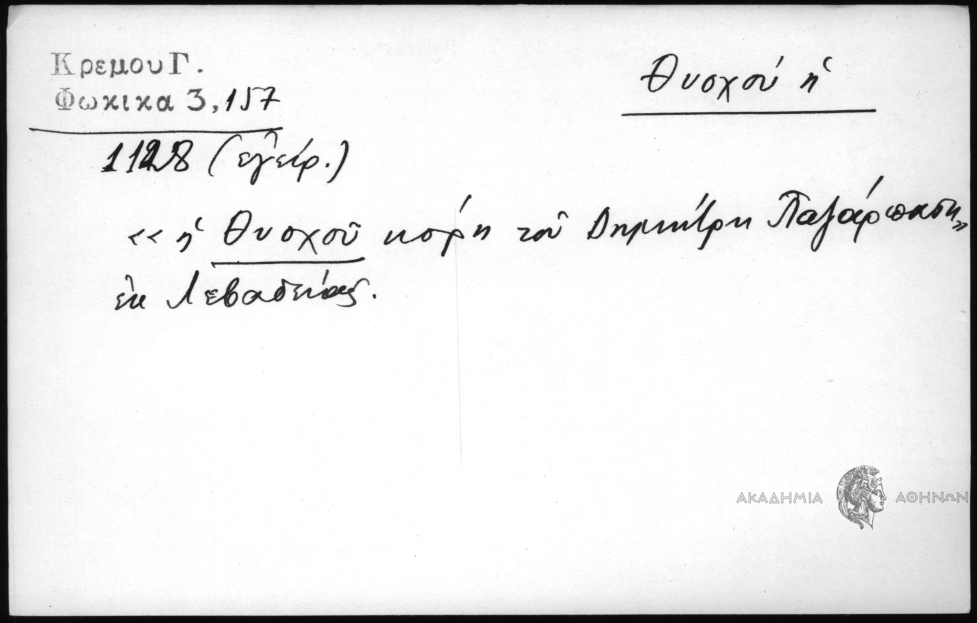 Κρεμου Γ.
Φωκικα 3, 157
Θυσχού ἡ
1128 (ἐγείρ.)
«ἡ Θυσχοῦ κόρη τοῦ Δημήτρη Παζάρμπαση»
ἐκ Λεβαδείας.
ΑΚΑΔΗΜΙΑ ΑΘΗΝΩΝ